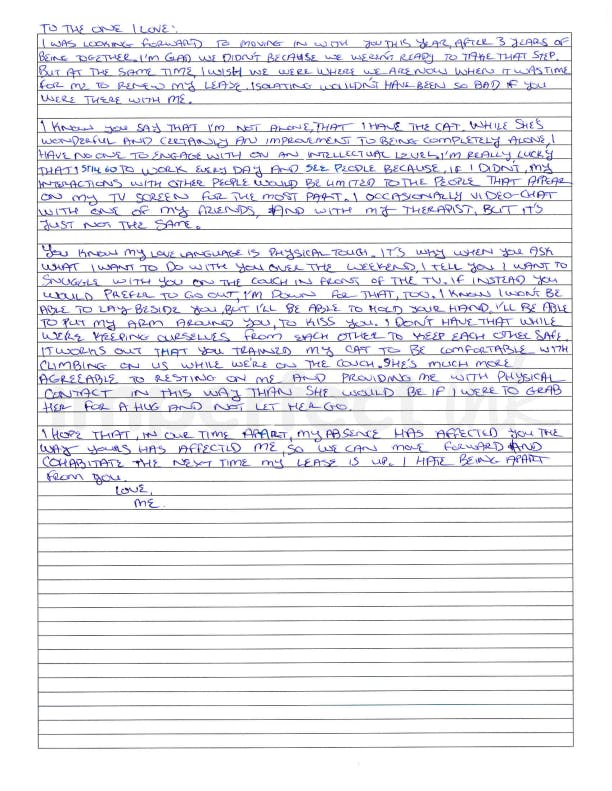 TO THE ONE I LOVE:
I WAS LOOKING FORWARD TO MOVING IN WITH YOU THIS YEAR, AFTER 3 YEARS OF
BEING TOGETHER. I'M GLAD WE DIDN'T BECAUSE WE WEREN'T READY TO TAKE THAT STEP.
BUT AT THE SAME TIME, I WISH WE WERE WHERE WE ARE NOW WHEN IT WAS TIME
FOR ME TO RENEW MY LEASE. ISOLATING WOULDN'T HAVE BEEN SO BAD IF YOU
WERE THERE WITH ME.
I KNOW YOU SAY THAT I'M NOT ALONE, THAT I HAVE THE CAT. WHILE SHE'S
WONDERFUL AND CERTAINLY AN IMPROVEMENT TO BEING COMPLETELY ALONE, I
HAVE NO ONE TO ENGAGE WITH ON AN INTELLECTUAL LEVEL. I'M REALLY LUCKY
THAT I STILL GO TO WORK EVERY DAY AND SEE PEOPLE BECAUSE, IF I DIDN'T, MY
INTERACTIONS WITH OTHER PEOPLE WOULD BE LIMITED TO THE PEOPLE THAT APPEAR
ON MY TV SCREEN FOR THE MOST PART. I OCCASIONALLY VIDEO-CHAT
WITH ONE OF MY FRIENDS, AND WITH MY THERAPIST, BUT IT'S
JUST NOT THE SAME.
YOU KNOW MY LOVE LANGUAGE IS PHYSICAL TOUCH. IT'S WHY WHEN YOU ASK
WHAT I WANT TO DO WITH YOU OVER THE WEEKEND, I TELL YOU I WANT TO
SNUGGLE WITH YOU ON THE COUCH IN FRONT OF THE TV. IF INSTEAD YOU
WOULD PREFER TO GO OUT, I'M DOWN FOR THAT, TOO. I KNOW I WON'T BE
ABLE TO LAY BESIDE YOU, BUT I'LL BE ABLE TO HOLD YOUR HAND, I'LL BE ABLE
TO PUT MY ARM AROUND YOU, TO KISS YOU. I DON'T HAVE THAT WHILE
WE'RE KEEPING OURSELVES FROM EACH OTHER TO KEEP EACH OTHER SAFE.
IT WORKS OUT THAT YOU TRAINED MY CAT TO BE COMFORTABLE WITH
CLIMBING ON US WHILE WE'RE ON THE COUCH. SHE'S MUCH MORE
AGREEABLE TO RESTING ON ME AND PROVIDING ME WITH PHYSICAL
CONTACT IN THIS WAY THAN SHE WOULD BE IF I WERE TO GRAB
HER FOR A HUG AND NOT LET HER GO.
I HOPE THAT, IN OUR TIME APART, MY ABSENCE HAS AFFECTED YOU THE
WAY YOURS HAS AFFECTED ME, SO WE CAN MOVE FORWARD AND
COHABITATE THE NEXT TIME MY LEASE IS UP. I HATE BEING APART
FROM YOU.
LOVE,
ME.